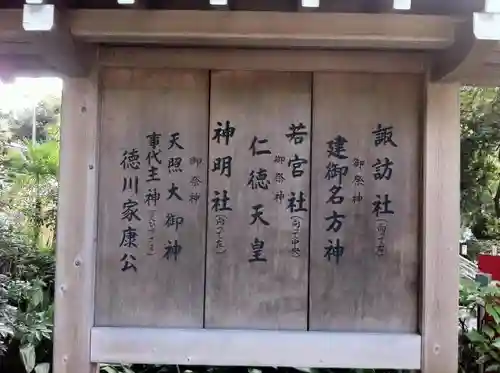 諏訪社(向って右)
御祭神
建御名方神
若宮社(向って中央)
御祭神
仁徳天皇
神明社(向って左)
御祭神
天照大御神
事代主神(えびす)
徳川家康公